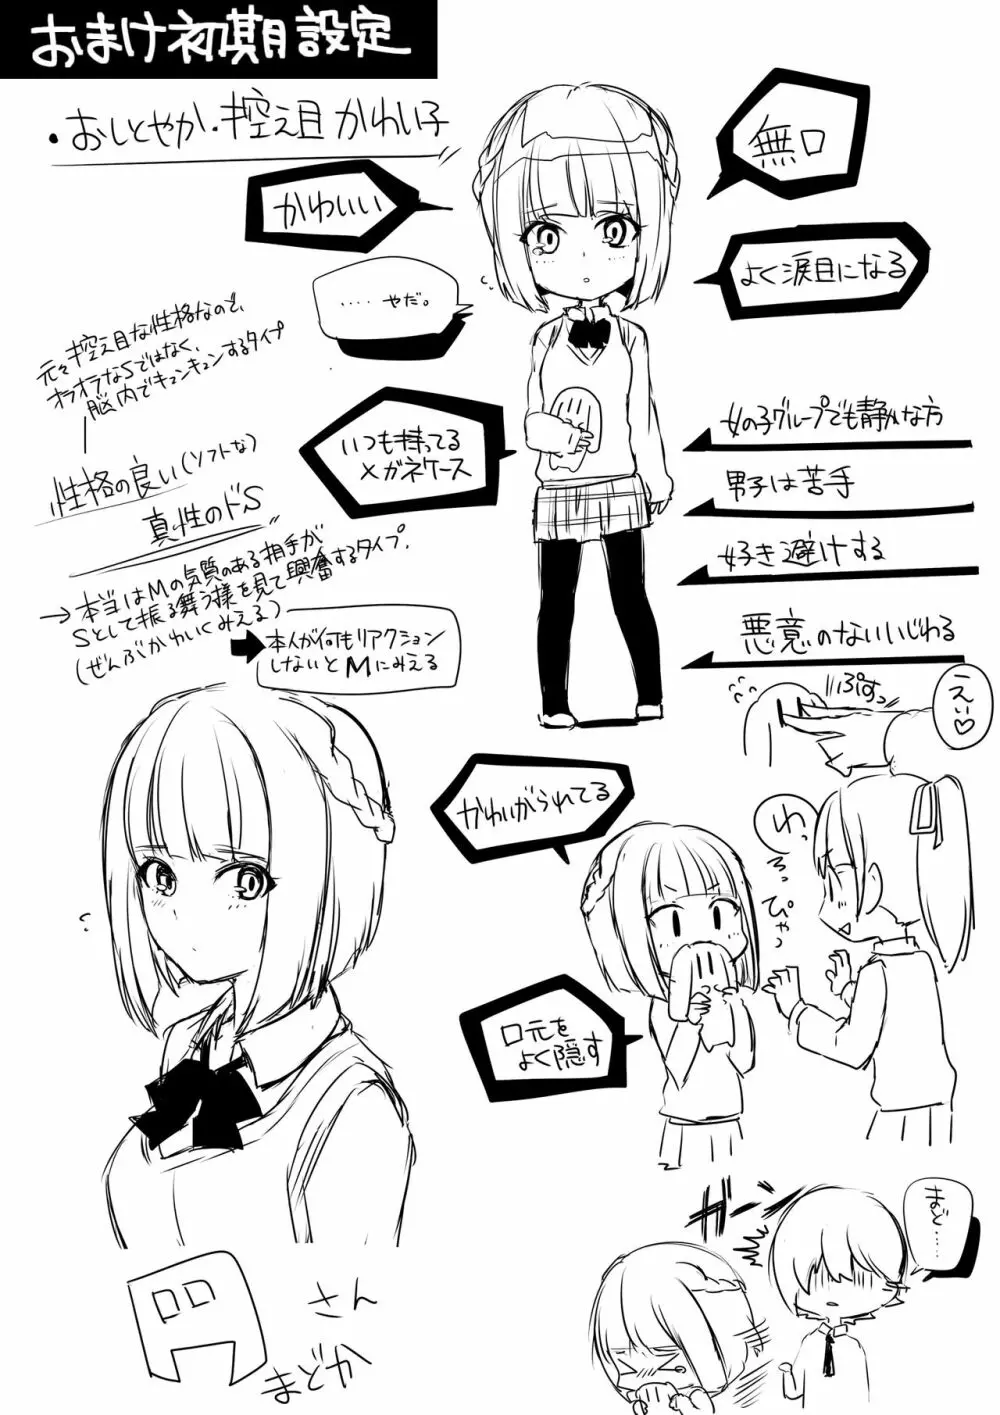 おまけ初期設定
・おしとやか・控え目 かわい子
無口
かわいい
よく涙目になる
‥‥やだ。
元々控え目な性格なので、
オラオラなSではなく、
脳内でキュンキュンするタイプ
いつも持ってる
メガネケース
女の子グループでも静かな方
男子は苦手
好き避けする
悪意のないいじわる
性格の良い(ソフトな)
真性のドS
→本当はMの気質のある相手が
Sとして振る舞う様を見て興奮するタイプ.
(ぜんぶかわいくみえる)
本人が何もリアクション
しないとMにみえる
ぷすっ
えい♡
かわいがられてる
わっ
ろっ
ぴゃっ
口元を
よく隠す
ガーン
まど……
円
さん
まどか